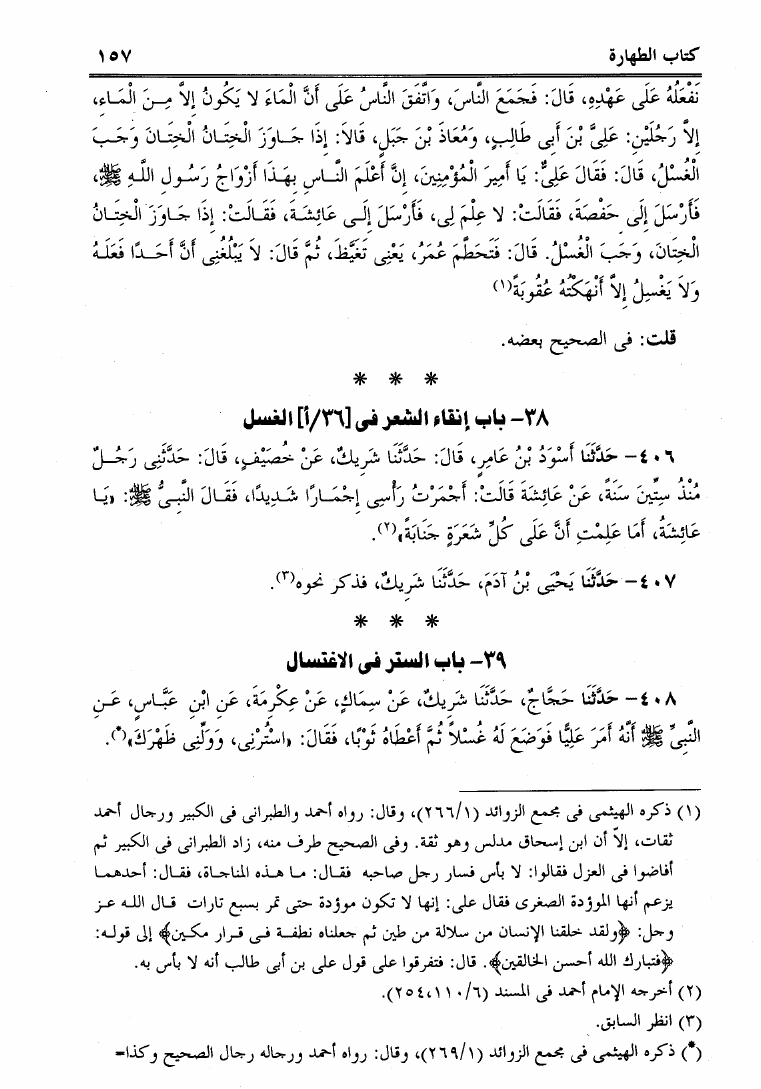 كتاب الطهارة ١٥٧
نَفْعَلُهُ عَلَى عَهْدِهِ، قَالَ: فَجَمَعَ النَّاسَ، وَاتَّفَقَ النَّاسُ عَلَى أَنَّ الْمَاءَ لاَ يَكُونُ إِلاَّ مِنَ الْمَاءِ،
إِلاَّ رَجُلَيْنِ: عَلِىَّ بْنَ أَبِى طَالِبٍ، وَمُعَاذَ بْنَ جَبَلٍ، قَالاَ: إِذَا جَاوَزَ الْخِتَانُ الْخِتَانَ وَجَبَ
الْغُسْلُ، قَالَ: فَقَالَ عَلِىٌّ: يَا أَمِيرَ الْمُؤْمِنِينَ، إِنَّ أَعْلَمَ النَّاسِ بِهَذَا أَزْوَاجُ رَسُولِ اللَّهِ ﷺ،
فَأَرْسَلَ إِلَى حَفْصَةَ، فَقَالَتْ: لاَ عِلْمَ لِى، فَأَرْسَلَ إِلَى عَائِشَةَ، فَقَالَتْ: إِذَا جَاوَزَ الْخِتَانُ
الْخِتَانَ، وَجَبَ الْغُسْلُ. قَالَ: فَتَحَطَّمَ عُمَرُ، يَعْنِى تَغَيَّظَ، ثُمَّ قَالَ: لاَ يَبْلُغُنِى أَنَّ أَحَدًا فَعَلَهُ
وَلاَ يَغْسِلُ إِلاَّ أَنْهَكْتُهُ عُقُوبَةً(١)
قلت: فى الصحيح بعضه.
* * *
٣٨- باب إنقاء الشعر فى [٣٦/أ] الغسل
٤٠٦- حَدَّثَنَا أَسْوَدُ بْنُ عَامِرٍ، قَالَ: حَدَّثَنَا شَرِيكٌ، عَنْ خُصَيْفٍ، قَالَ: حَدَّثَنِى رَجُلٌ
مُنْذُ سِتِّينَ سَنَةً، عَنْ عَائِشَةَ قَالَتْ: أَجْمَرْتُ رَأْسِى إِجْمَارًا شَدِيدًا، فَقَالَ النَّبِىُّ ﷺ: «يَا
عَائِشَةُ، أَمَا عَلِمْتِ أَنَّ عَلَى كُلِّ شَعَرَةٍ جَنَابَةً»(٢).
٤٠٧- حَدَّثَنَا يَحْيَى بْنُ آدَمَ، حَدَّثَنَا شَرِيكٌ، فذكر نحوه(٣).
* * *
٣٩- باب الستر فى الاغتسال
٤٠٨- حَدَّثَنَا حَجَّاجٌ، حَدَّثَنَا شَرِيكٌ، عَنْ سِمَاكٍ، عَنْ عِكْرِمَةَ، عَنِ ابْنِ عَبَّاسٍ، عَنِ
النَّبِىِّ ﷺ أَنَّهُ أَمَرَ عَلِيًّا فَوَضَعَ لَهُ غُسْلاً ثُمَّ أَعْطَاهُ ثَوْبًا، فَقَالَ: «اسْتُرْنِى، وَوَلِّنِى ظَهْرَكَ»(*).
(١) ذكره الهيثمى فى مجمع الزوائد (٢٦٦/١)، وقال: رواه أحمد والطبرانى فى الكبير ورجال أحمد
ثقات، إلاّ أن ابن إسحاق مدلس وهو ثقة. وفى الصحيح طرف منه، زاد الطبرانى فى الكبير ثم
أفاضوا فى العزل فقالوا: لا بأس فسار رجل صاحبه فقال: ما هذه المناجاة، فقال: أحدهما
يزعم أنها المؤودة الصغرى فقال على: إنها لا تكون موؤدة حتى تمر بسبع تارات قال الله عز
وجل: ﴿ولقد خلقنا الإنسان من سلالة من طين ثم جعلناه نطفة فى قرار مكين﴾ إلى قوله:
﴿فتبارك الله أحسن الخالقين﴾. قال: فتفرقوا على قول على بن أبى طالب أنه لا بأس به.
(٢) أخرجه الإمام أحمد فى المسند (١١٠/٦، ٢٥٤).
(٣) انظر السابق.
(*) ذكره الهيثمى فى مجمع الزوائد (٢٦٩/١)، وقال: رواه أحمد ورجاله رجال الصحيح وكذا=